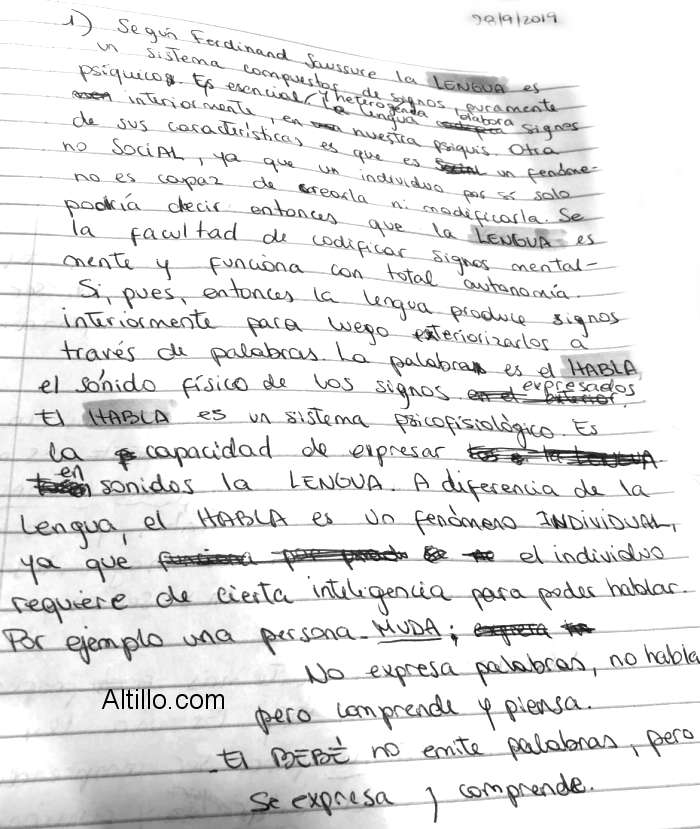 28/9/2019
1) Según Ferdinand Saussure la LENGUA es
un sistema compuestos de signos, puramente
psiquicos. Es esencial y heterogenea
La lengua elabora signos
interiormente, en nuestra psiquis. Otra
de sus caracteristicas es que es un fenóme-
no SOCIAL, ya que un individuo por sí solo
no es capaz de crearla ni modificarla. Se
podría decir entonces que la LENGUA es
la facultad de codificar signos mental-
mente y funciona con total autonomía.
Si, pues, entonces la lengua produce signos
interiormente para luego exteriorizarlos a
través de palabras. La palabra es el HABLA,
el sónido físico de los signos expresados.
El HABLA es un sistema psicofisiológico. Es
la capacidad de expresar
en sonidos la LENGUA. A diferencia de la
Lengua, el HABLA es un fenómeno INDIVIDUAL,
ya que el individuo
requiere de cierta inteligencia para poder hablar.
Por ejemplo una persona MUDA;
No expresa palabras, no habla
pero comprende y piensa.
Altillo.com
- El BEBÉ no emite palabras, pero
se expresa y comprende.